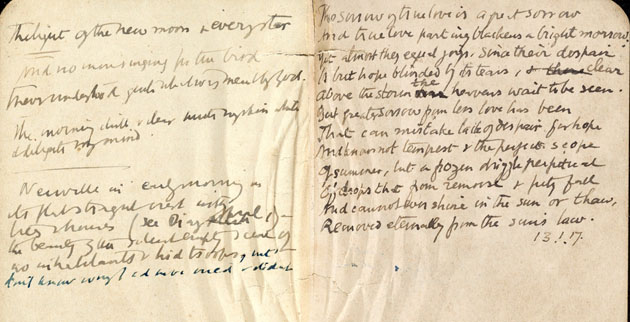 The light of the new moon & every star
And no more singing for the bird
I never understood quite what was meant by God.
The morning chill & clear hurts my skin while it
delights my mind.
Neuville in early morning in
its flat straight crest with
trees & houses (see Diary
the beauty of this silent empty scene of
no inhabitants & hid troops, but
don't know why I could have cried & didn't
The sorrow of true love is a great sorrow
And true love parting blackens a bright morrow;
Yet almost they equal joys, since their despair
Is but hope blinded by its tears, & clear
Above the storm the heavens wait to be seen.
But greater sorrow from less love has been
That can mistake lack of despair for hope
And knows not tempest & the perfect scope
Of summer, but a frozen drizzle perpetual
Of drops that from remorse & pity fall
And cannot ever shine in the sun or thaw,
Removed eternally from the sun's law.
13.1.17.